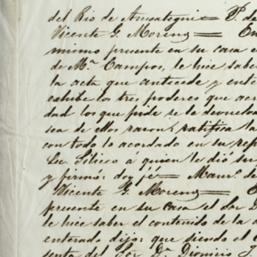 del Rio de Amsategui = P. de
Vicente G. Moreno = En
mismo presente en su casa el
de Mª Campos, le hice sabe
la acta que antecede y ente
estube los tres poderes que acr
dad los que pide se le devuelva
sea de ellos razon; ratifica la
con todo lo acordado en su rep
Lic. á quien le dió su
y firmó: doy fe = Man. de
Vicente G. Moreno = 
presente en su casa el Sor D
le hice saber el contenido de la a
enterado dijo: que siendo el
senta del Sor Dn Dionisio J